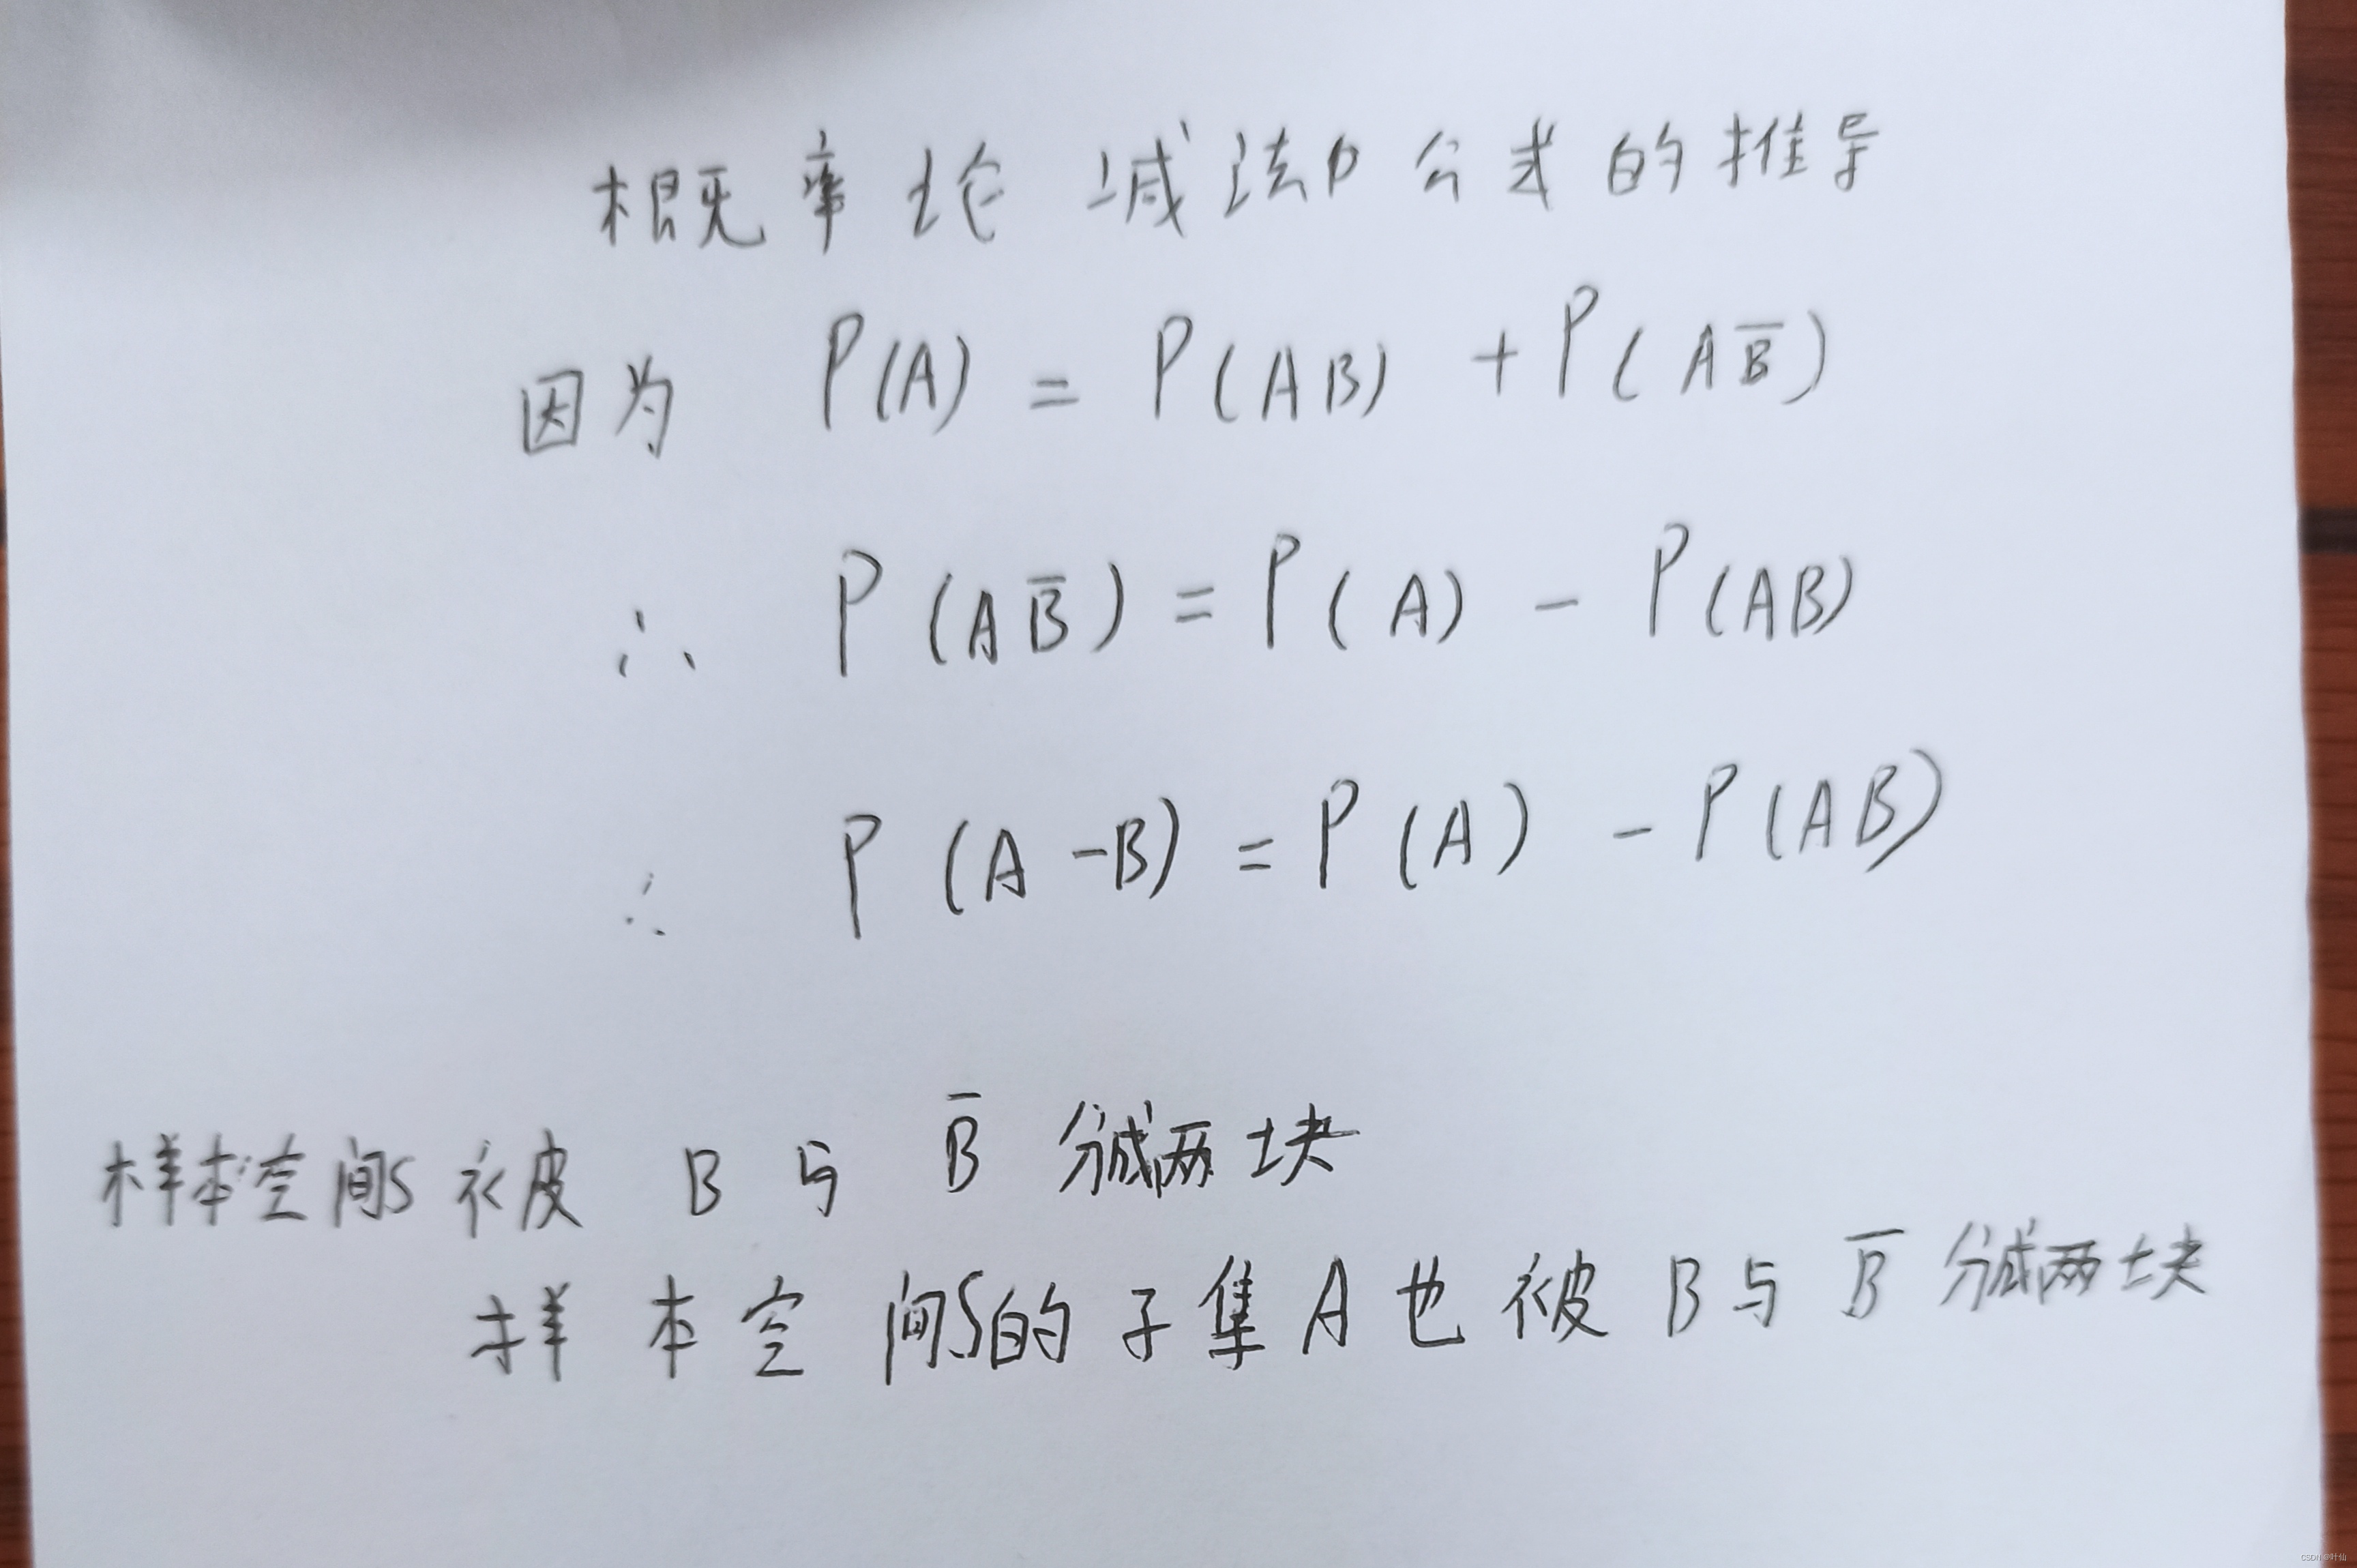 概率论 减法 公式的推导
因为 P(A) = P(AB) + P(AB̅)
∴ P(AB̅) = P(A) - P(AB)
∴ P(A-B) = P(A) - P(AB)
样本空间S被 B与 B̅ 分成两块
样本空间S的子集A也被B与B̅分成两块
CSDN @叶仙